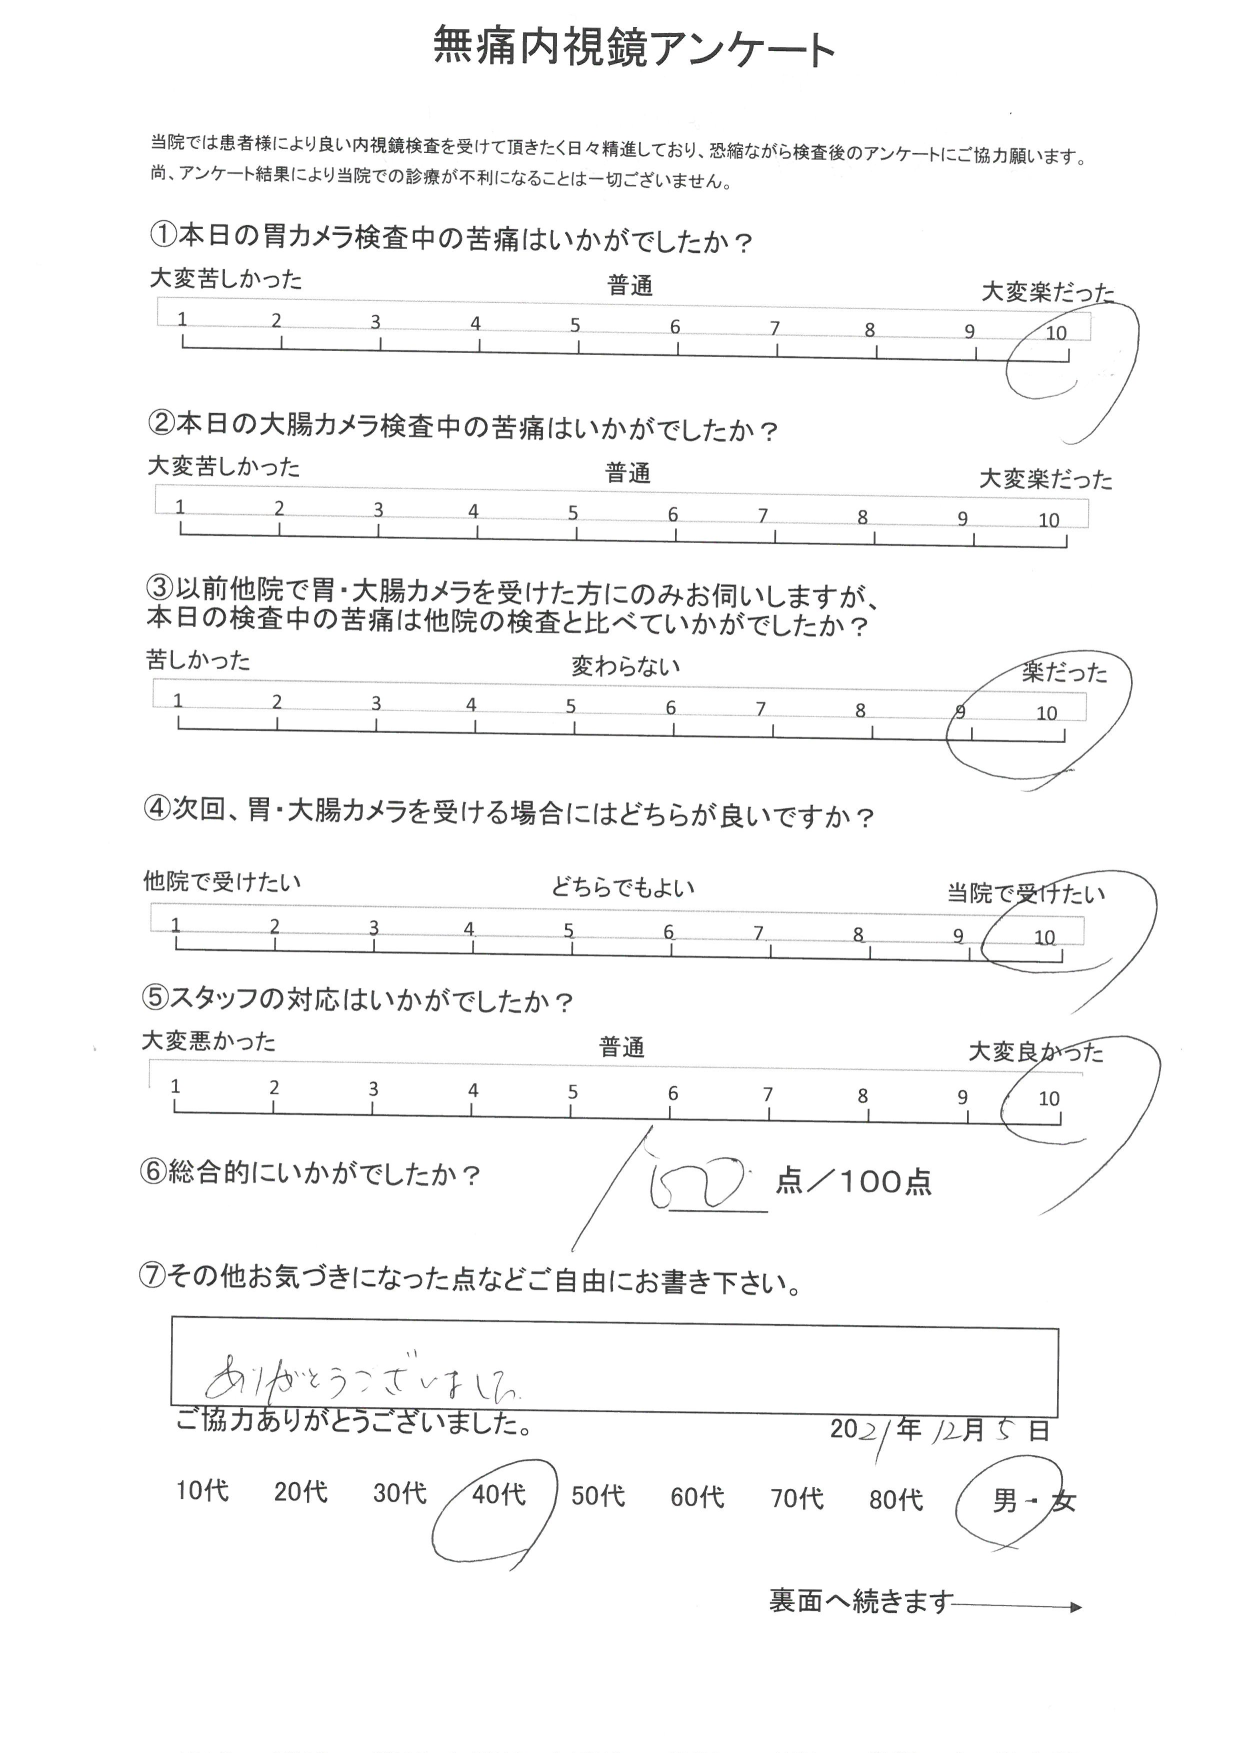 無痛内視鏡アンケート
当院では患者様により良い内視鏡検査を受けて頂きたく日々精進しており、恐縮ながら検査後のアンケートにご協力願います。
尚、アンケート結果により当院での診療が不利になることは一切ございません。
①本日の胃カメラ検査中の苦痛はいかがでしたか？
大変苦しかった 普通 大変楽だった
1 2 3 4 5 6 7 8 9 10
②本日の大腸カメラ検査中の苦痛はいかがでしたか？
大変苦しかった 普通 大変楽だった
1 2 3 4 5 6 7 8 9 10
③以前他院で胃・大腸カメラを受けた方にのみお伺いしますが、
本日の検査中の苦痛は他院の検査と比べていかがでしたか？
苦しかった 変わらない 楽だった
1 2 3 4 5 6 7 8 9 10
④次回、胃・大腸カメラを受ける場合にはどちらが良いですか？
他院で受けたい どちらでもよい 当院で受けたい
1 2 3 4 5 6 7 8 9 10
⑤スタッフの対応はいかがでしたか？
大変悪かった 普通 大変良かった
1 2 3 4 5 6 7 8 9 10
⑥総合的にいかがでしたか？ 100 点／100点
⑦その他お気づきになった点などご自由にお書き下さい。
ありがとうございました
ご協力ありがとうございました。 2021年12月5日
10代 20代 30代 40代 50代 60代 70代 80代 男・女
裏面へ続きます